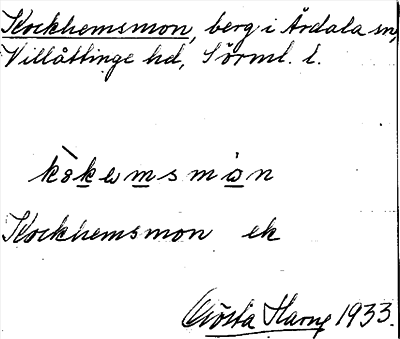 Kockhemsmon, berg i Årdala sn,
Villåttinge hd, Sörml. l.
Kockhemsmon ek
Gösta Harne 1933.